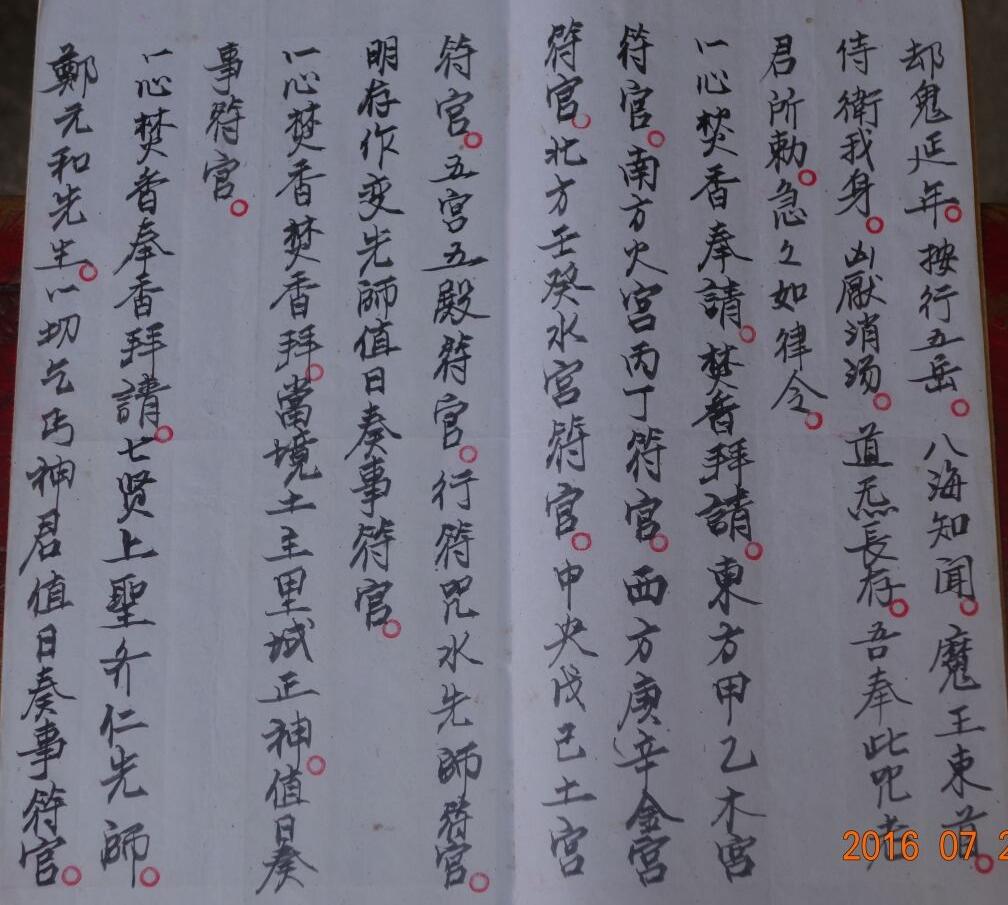 却鬼延年。按行五岳。八海知聞。魔王束首。
侍衛我身。凶厭消汤。道炁長存。吾奉此咒老
君所勅。急々如律令。
一心焚香奉請。焚香拜請。東方甲乙木宮
符官。南方火宮丙丁符官。西方庚辛金宮
符官。北方壬癸水宮符官。中央戊己土宮
符官。五宮五殿符官。行符咒水先師符官。
明存作变先師值日奏事符官。
一心焚香焚香拜。當境土主里域正神。值日奏
事符官。
一心焚香奉香拜請。七贤上聖齐仁先師。
鄭元和先生。一切乞丐神君值日奏事符官。
2016 07 2